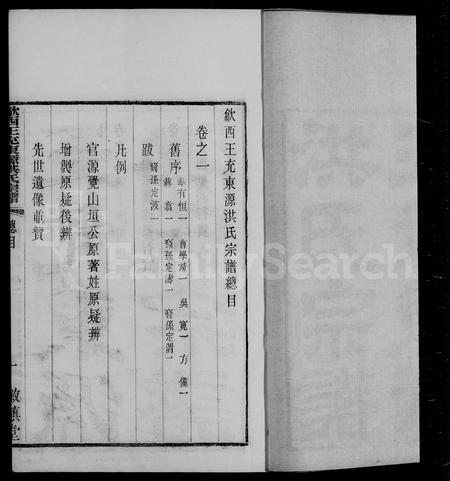 歙西王充東源洪氏宗譜總目
卷之一
舊序
有恒一 曹學詩一 吳寬一 方僅一
蔣翥一 裔孫定濤一 裔孫定渭一
跋 裔孫定波一
凡例
官源覺山垣公原著姓原疑辨
增製原疑後辨
先世遺像並贊
歙西王充東源洪氏宗譜 總目 一 敦鎮堂
FamilySearch